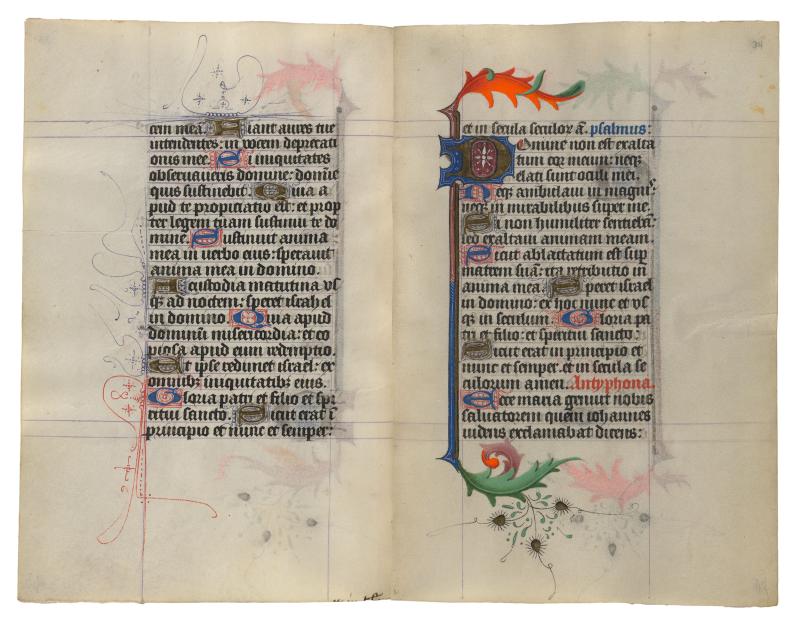 cem mea. Fiant aures tue
intendentes: in vocem deprecati
onis mee. Si iniquitates
observaveris domine: domine
quis sustinebit. Quia a
pud te propiciatio est: et prop
ter legem tuam sustinui te do
mine. Sustinuit anima
mea in verbo eius: speravit
anima mea in domino.
A custodia matutina vs
q̃ ad noctem: speret israhel
in domino. Quia apud
dominũ misericordia: et co
piosa apud eum redemptio.
Et ipse redimet israel: ex
omnibꝫ iniquitatibꝫ eius.
Gloria patri et filio et spi
ritui sancto. Sicut erat ĩ
principio et nunc et semper:
34
et in secula seculoꝝ a͂. psalmus:
Domine non est exalta
tum cor meum: neqꝫ
elati sunt oculi mei.
Neqꝫ ambulavi in magnis:
neqꝫ in mirabilibus super me.
Si non humiliter sentiebã:
sed exaltavi animam meam.
Sicut ablactatum est sup
matrem suã: ita retributio in
anima mea. Speret israel
in domino: ex hoc nunc et vs
q̃ in seculum. Gloria pa
tri et filio: et spiritui sancto.
Sicut erat in principio et
nunc et semper. et in secula se
culorum amen. Antyphona.
Ecce maria genuit nobis
salvatorem quem iohannes
videns exclamabat dicens: